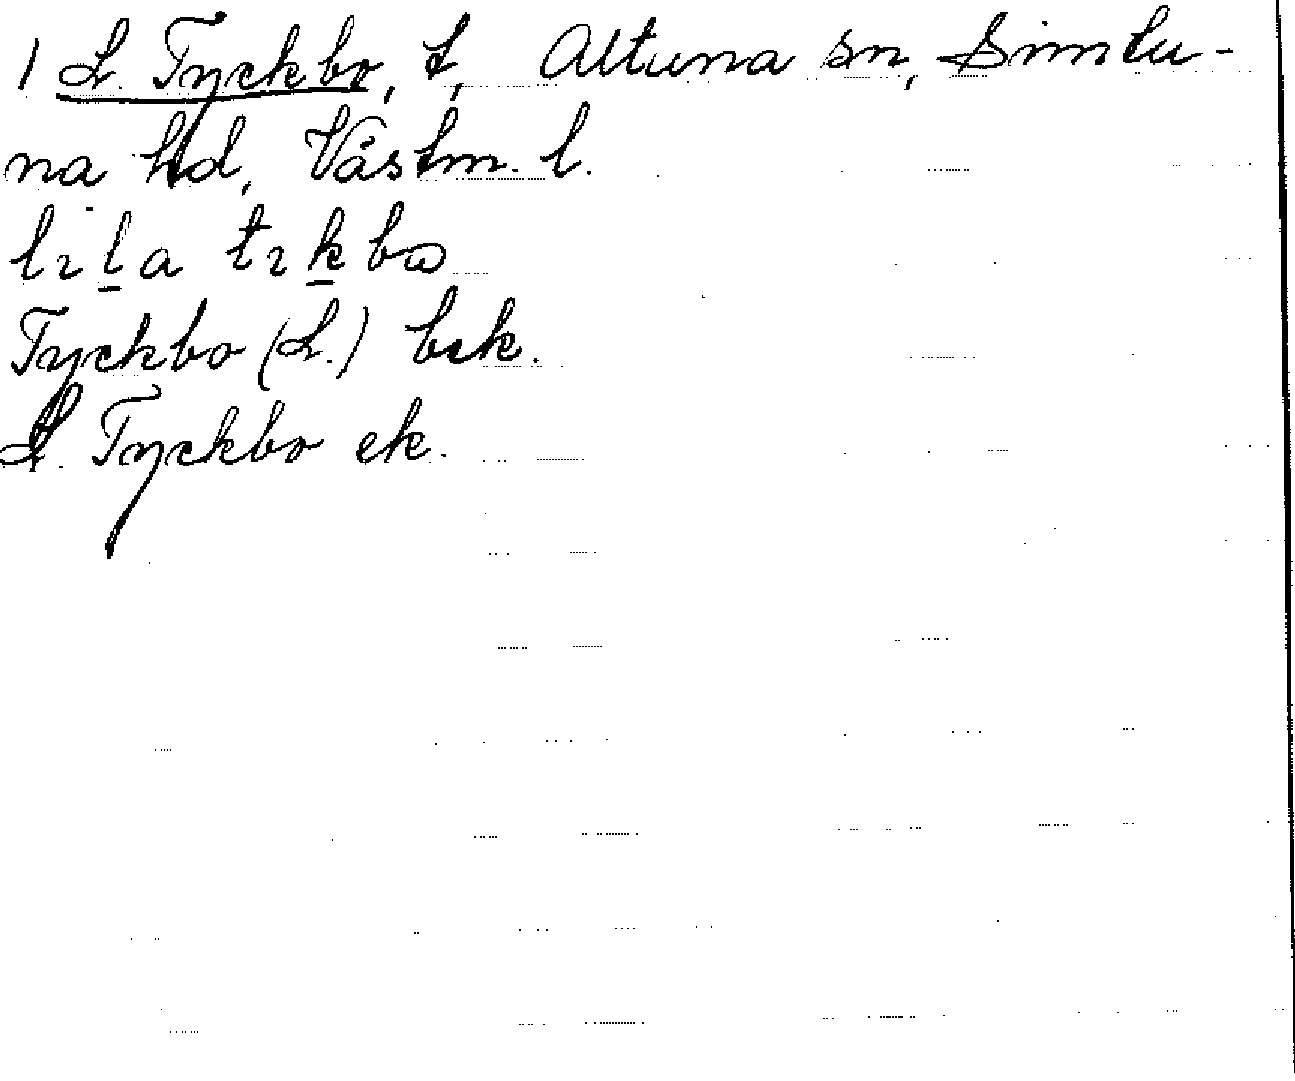 1 L. Tyckbo, t, Altuna sn, Simtu-
na hd, Västm. l.
lıl̲a tık̲bω
Tyckbo (L.) bek.
L. Tyckbo ek.